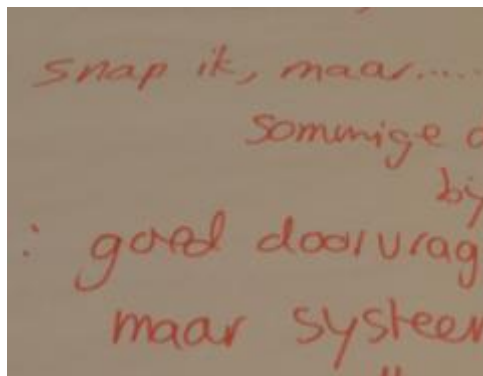 snap ik, maar.....
sommige
: goed doorvrag
maar systeem